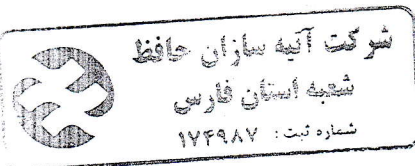 شرکت آتیه سازان حافظ
شعبه استان فارس
شماره ثبت: ۱۷۴۹۸۷